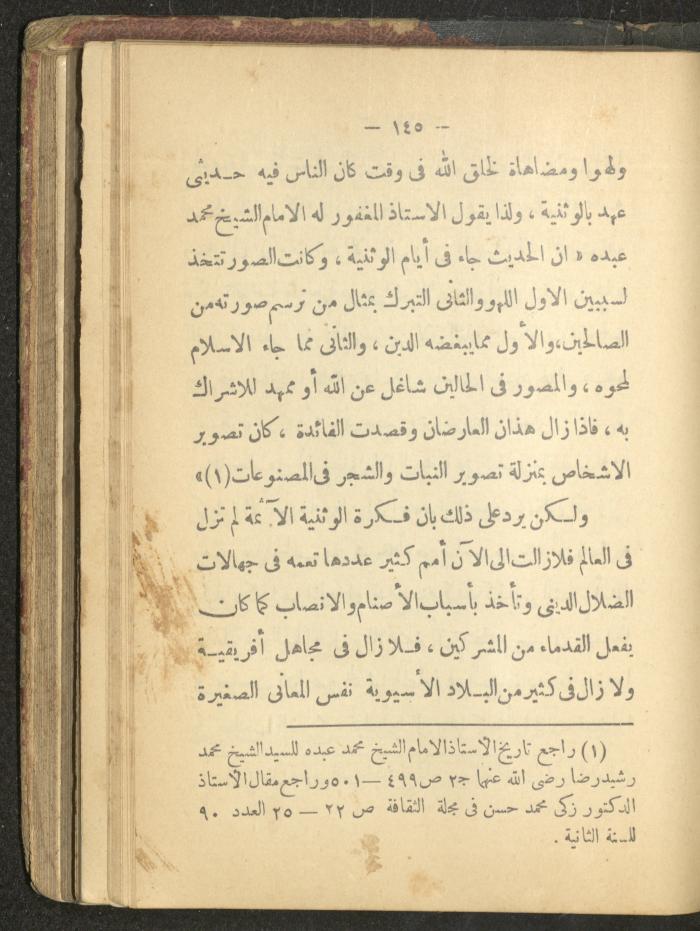 — ١٤٥ —
ولهوا ومضاهاة لخلق الله فى وقت كان الناس فيه حـديثى
عهد بالوثنية ، ولذا يقول الاستاذ المغفور له الامام الشيخ محمد
عبده « ان الحديث جاء فى أيام الوثنية ، وكانت الصور تتخذ
لسببين الاول اللهو والثانى التبرك بمثال من ترسم صورته من
الصالحين، والأول مما يبغضه الدين ، والثانى مما جاء الاسلام
لمحوه ، والمصور فى الحالين شاغل عن الله أو ممهد للاشراك
به ، فاذا زال هذان العارضان وقصدت الفائدة ، كان تصوير
الاشخاص بمنزلة تصوير النبات والشجر فى المصنوعات (١) »
ولـكن يرد على ذلك بان فـكرة الوثنية الآثمة لم تزل
فى العالم فلازالت الى الآن أمم كثير عددها تعمه فى جهالات
الضلال الدينى وتأخذ بأسباب الأصنام والانصاب كما كان
يفعل القدماء من المشركين ، فـلا زال فى مجاهل أفريقيـة
ولا زال فى كثير من البـلاد الأسيوية نفس المعانى الصغيرة
(١) راجع تاريخ الأستاذ الامام الشيخ محمد عبده للسيد الشيخ محمد
رشيد رضا رضى الله عنهما ج٢ ص ٤٩٩ — ٥٠١ وراجع مقال الأستاذ
الدكتور زكى محمد حسن فى مجلة الثقافة ص ٢٢ — ٢٥ العدد ٩٠
للسنة الثانية .